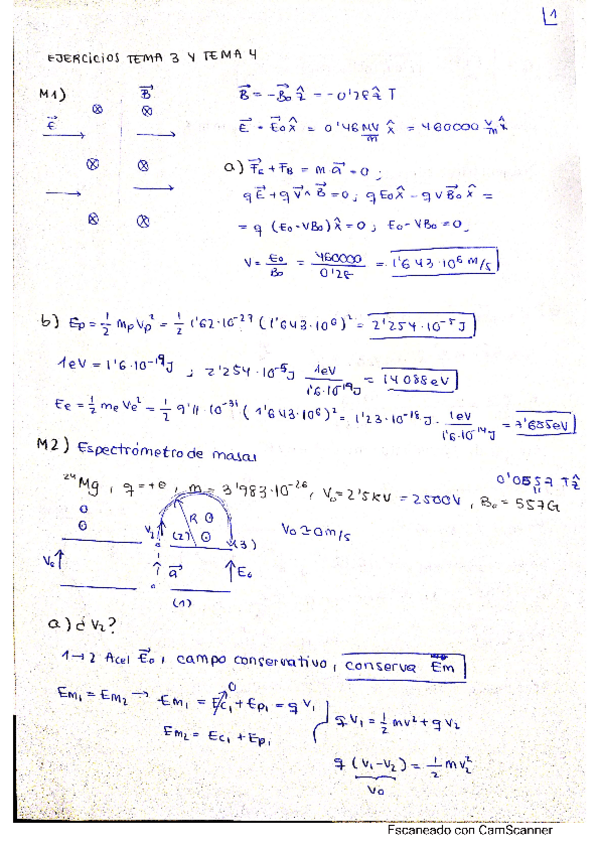 1
EJERCICIOS TEMA 3 Y TEMA 4
M1)
B⃗
B⃗ = -B₀ẑ = -0'28ẑ T
E⃗
E⃗ = E₀x̂ = 0'46 MV/m x̂ = 460000 V/m x̂
a) F⃗e + F⃗B = m a⃗ = 0 ;
qE⃗ + q V⃗ ∧ B⃗ = 0 ; qE₀x̂ - qVB₀x̂ =
= q (E₀ - VB₀) x̂ = 0 ; E₀ - VB₀ = 0
V = E₀/B₀ = 460000/0'28 = 1'643·10⁶ m/s
b) Ep = 1/2 mp Vp² = 1/2 1'62·10⁻²⁷ (1'643·10⁶)² = 2'254·10⁻⁵ J
1eV = 1'6·10⁻¹⁹J ; 2'254·10⁻⁵J 1eV/1'6·10⁻¹⁹J = 14088eV
Ee = 1/2 me Ve² = 1/2 9'11·10⁻³¹ (1'643·10⁶)² = 1'23·10⁻¹⁸ J · 1eV/1'6·10⁻¹⁹J = 7'685eV
M2) Espectrómetro de masas
0'0557 T ẑ
²⁴Mg, q = +e, m = 3'983·10⁻²⁶, V₀ = 2'5KV = 2500V, B₀ = 557G
V₂ R (2) (3)
V₀ ≃ 0 m/s
V₀ a⃗ E₀
(1)
a) ¿V₂?
1→2 Acel E⃗₀, campo conservativo, conserva Em
Em₁ = Em₂ → Em₁ = Ec₁ + Ep₁ = qV₁
0
qV₁ = 1/2 mv² + qV₂
Em₂ = Ec₁ + Ep₁
q (V₁-V₂) = 1/2 mv₂²
V₀
Escaneado con CamScanner